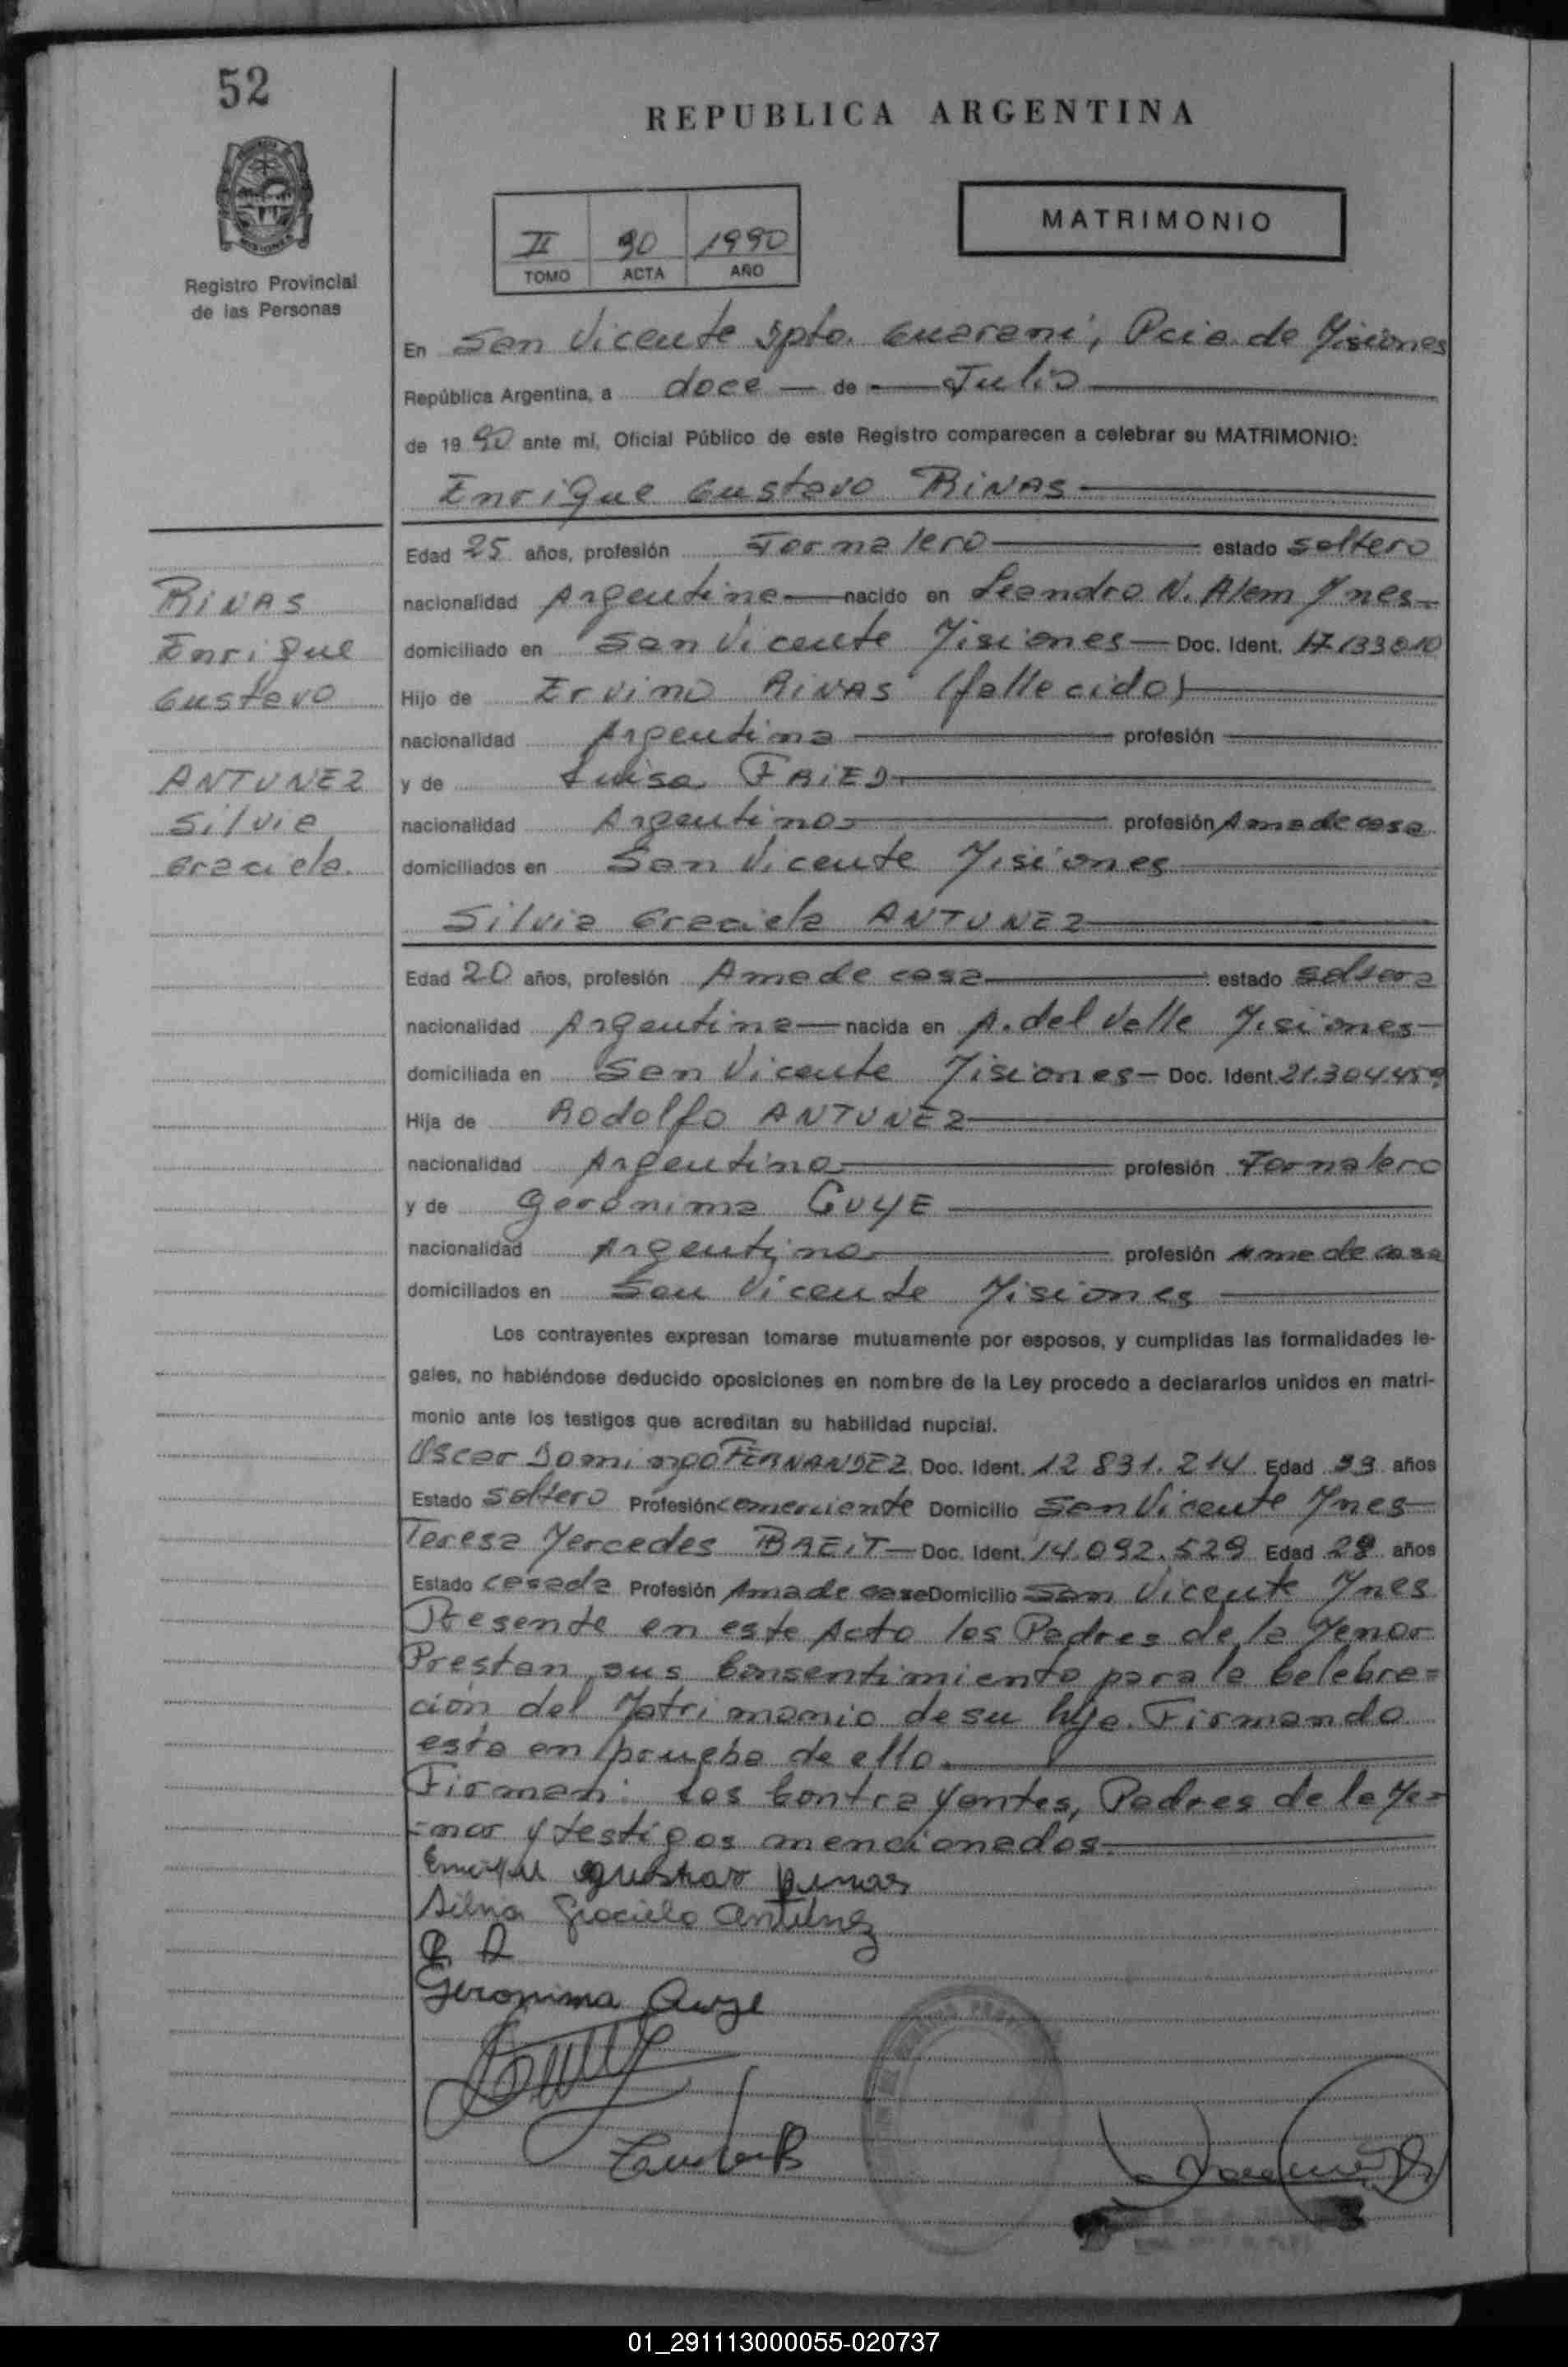 52
REPUBLICA ARGENTINA
MATRIMONIO
II 90 1990
TOMO ACTA AÑO
Registro Provincial
de las Personas
En San Vicente Dpto. Guarani, Pcia. de Misiones
República Argentina, a doce — de — Julio
de 1990 ante mí, Oficial Público de este Registro comparecen a celebrar su MATRIMONIO:
Enrique Gustavo RINAS
Edad 25 años, profesión Jornalero estado soltero
nacionalidad Argentina nacido en Leandro N. Alem Mnes
domiciliado en San Vicente Misiones Doc. Ident. 17.133.010
Hijo de Ervino RINAS (fallecido)
nacionalidad Argentina profesión
y de Luisa FRIED
nacionalidad Argentina profesión Ama de casa
domiciliados en San Vicente Misiones
RINAS
Enrique
Gustavo
ANTUNEZ
Silvia
Graciela.
Silvia Graciela ANTUNEZ
Edad 20 años, profesión Ama de casa estado soltera
nacionalidad Argentina nacida en A. del Valle Misiones
domiciliada en San Vicente Misiones Doc. Ident. 21.304.459
Hija de Rodolfo ANTUNEZ
nacionalidad Argentina profesión Jornalero
y de Gerónima GUYE
nacionalidad Argentina profesión Ama de casa
domiciliados en San Vicente Misiones
Los contrayentes expresan tomarse mutuamente por esposos, y cumplidas las formalidades le-
gales, no habiéndose deducido oposiciones en nombre de la Ley procedo a declararlos unidos en matri-
monio ante los testigos que acreditan su habilidad nupcial.
Oscar Domingo FERNANDEZ Doc. Ident. 12.831.214 Edad 33 años
Estado soltero Profesión comerciente Domicilio San Vicente Mnes
Teresa Mercedes BREIT Doc. Ident. 14.092.529 Edad 29 años
Estado casada Profesión Ama de casa Domicilio San Vicente Mnes
Presente en este Acto los Padres de la Menor
Prestan sus Consentimiento para la Celebra=
ción del Matrimonio de su hija. Firmando
esta en prueba de ello.
Firman: Los Contrayentes, Padres de la Me=
=nor y testigos mencionados.
Enrique gustavo Rinas
Silvia Graciela Antunez
R A
Geronima Guye
01_291113000055-020737